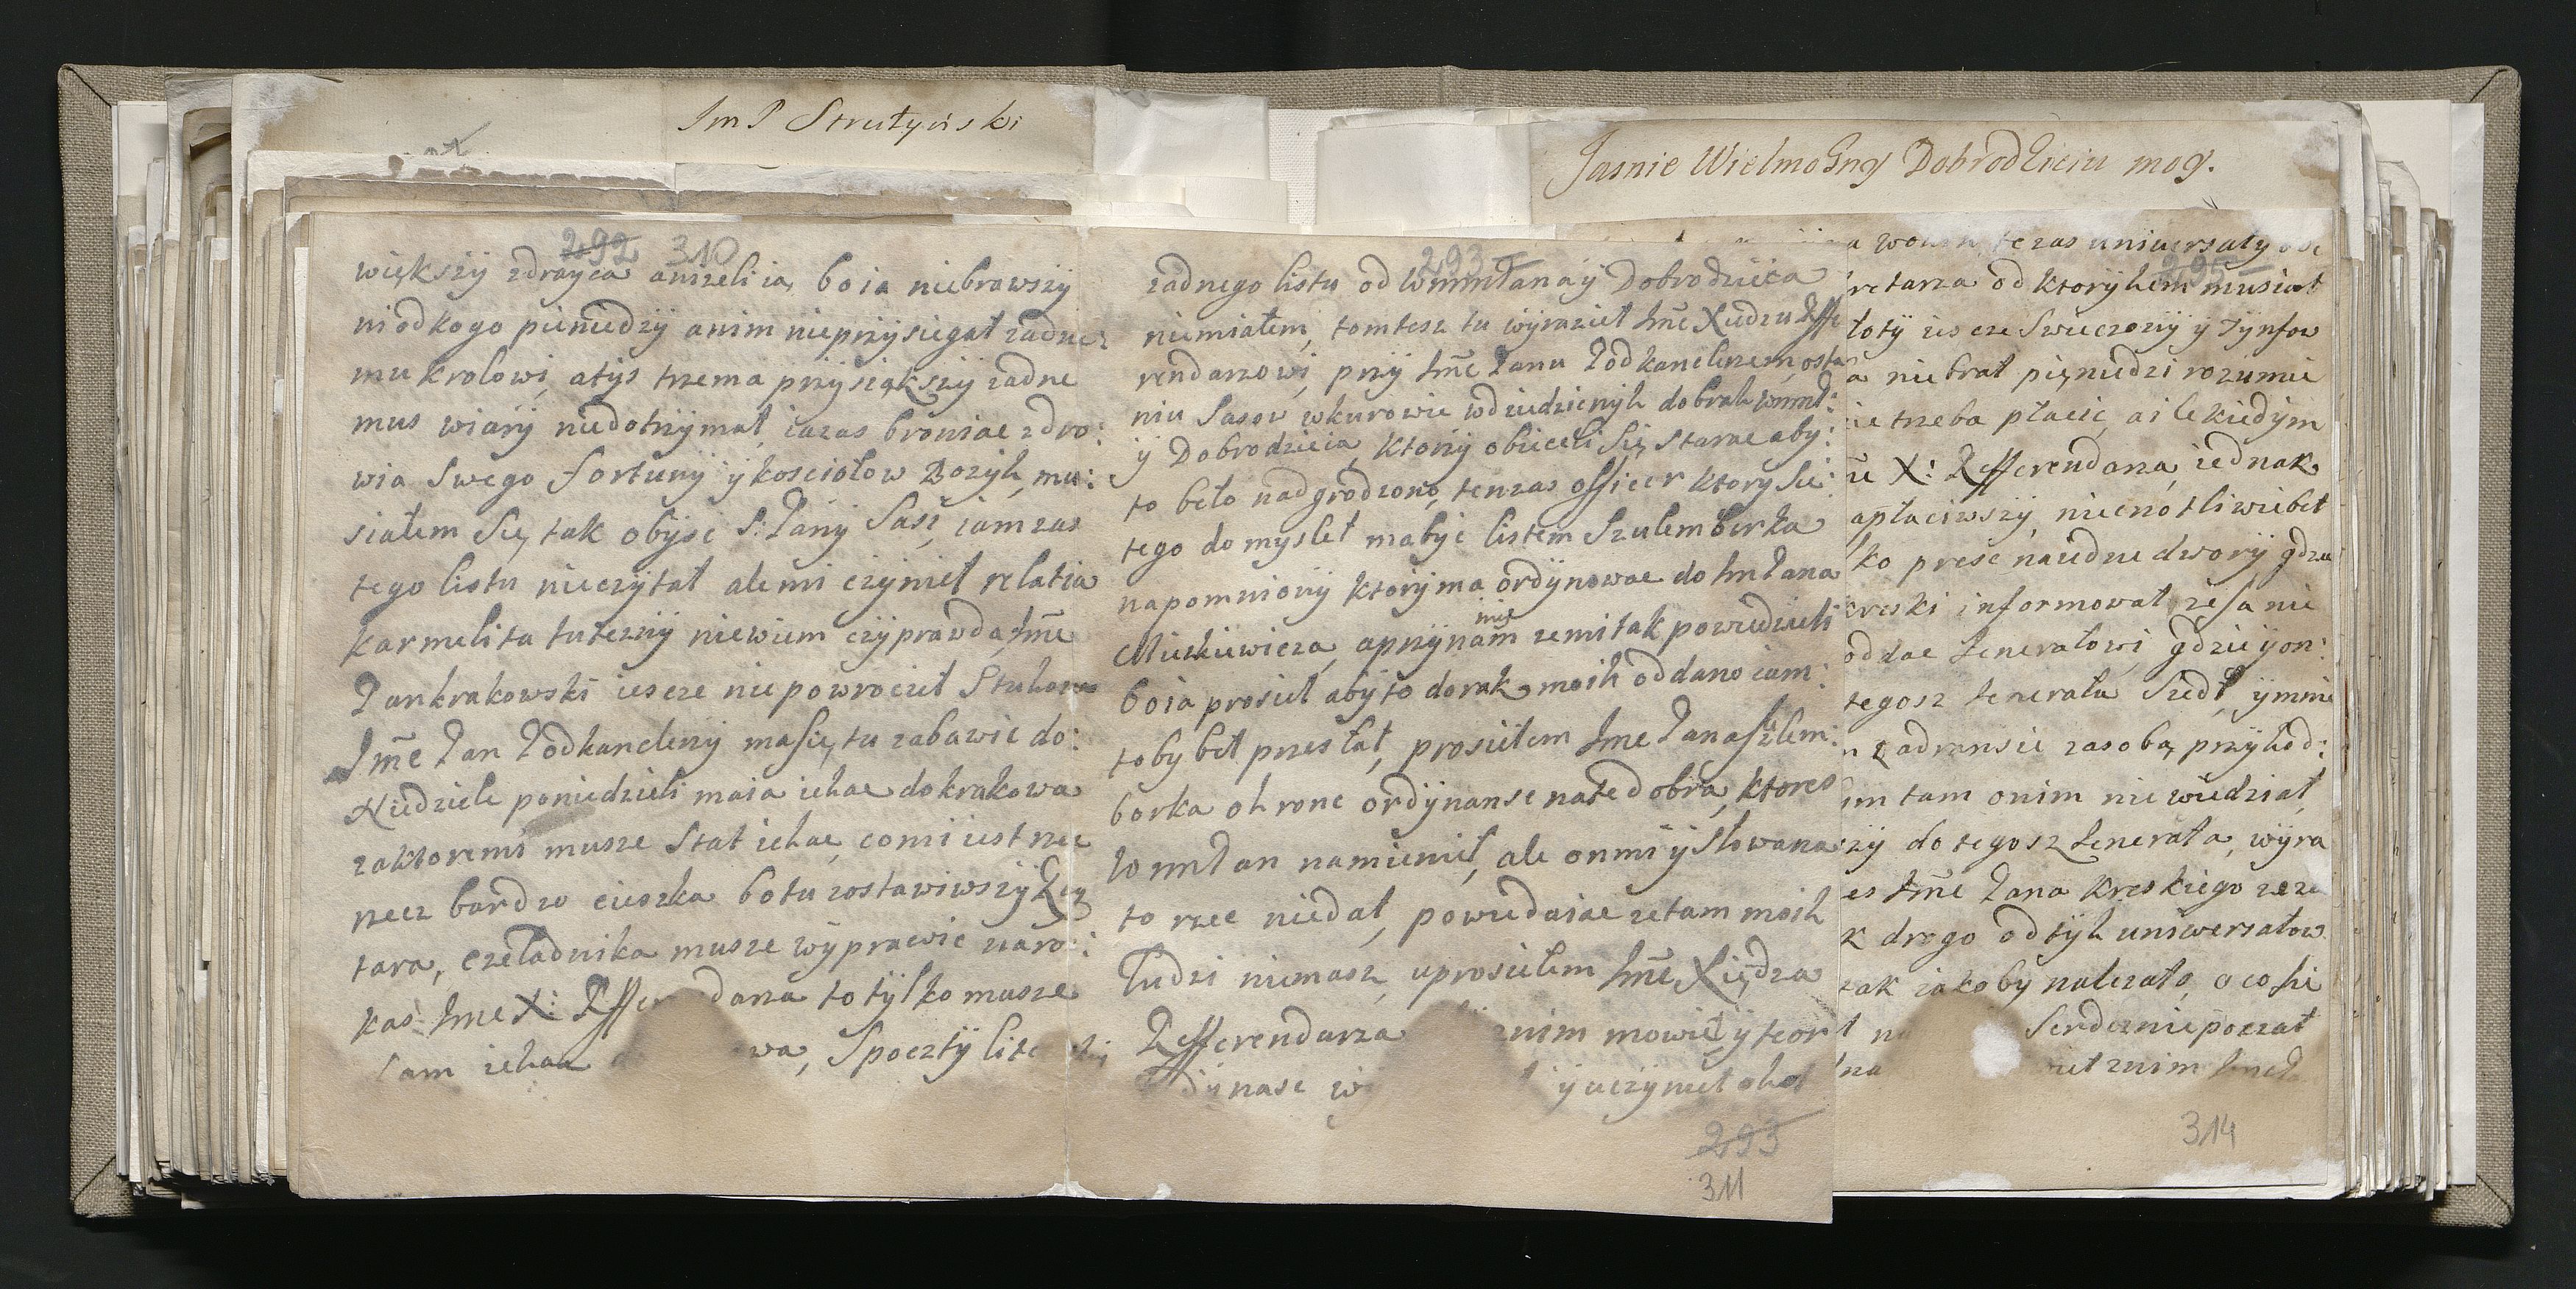 Im P Strutyński
292 310
większy zdrayca anizeli ia, bo ia niebrawszy
niodkogo pieniedzy anim nieprzysiegał zadne:
mu krolowi, atys trzema przysiąkszy zadne
mus wiary niedotrzymał, iazas broniac zdro:
wia Swego fortuny y kosciolow Bozyh, mu:
siałem Się, tak obysc S: Pany Sasi, iam zas
tego listu nieczytał ale mi czynieł relatia
karmelita tutezny niewiem czy prawda, Jme
Pan krakowski iescze niepowrocieł
Jme Pan Podkanclerzy ma Się, tu zabawic do:
Niedziele poniedzieli maia iehac do krakowa
zaktoremi musze Stat iehac, comi iest
rzecz bardzo cieszka bo tu zostawiwszy
tara, czeladnika musze wyprawic naro:
kas Jme X: Reffe darza to tylko musze
Sam iehac wa, Spoczty
Jasnie Wielmozny Dobrodzieiu moy.
293
zadnego listu od Wmm Pana y Dobrodzieia
niemiałem, tomtesz tu wyrazieł Jme Xiedzu Reffe
rendarzowi, przy Jme Panu Podkanclerzem, osta
niu Sasow wkurowie wdziedzicnyh dobrah wmmP:
y Dobrodzieia, ktory obieceli Się, starac aby:
to beło nadgrodzono, tenzas officer ktory Sie:
tego domysleł mabyc listem Szulemberka
napomniony ktory ma ordynowac do Jm Pana
Mickiewicza, aprzynam mie zemi tak powiedzieli
bo ia prosieł aby to dorak moih oddano iam:
toby beł przesłał, prosiełem Jme Pana Szlem:
borka ohrone ordynanse nate dobra, ktores
Wmm Pan namienieł, ale on mi y Słowa na
to rzec niedał, powiedaiac ze tam moih
ludzi niemasz, uprosiełem Jme Xiędza
Refferendarza znim mowieł y teor
dynase w y uczynieł ohot
293
311
tezas uniwersały
295
retarza od ktoryhem musiał
łoty iescze Swieczozyy y Tynfow
a niebrał pięniedzi rozumie
ie trzeba płacic, a ile kiedym
X: Refferendarza, iednak
apłaciwszy, niecnotliwie beł
ko presc naiedne dwory gdzie
informował ze Sa nie
oddac Jenerałowi, gdzie y on:
tegosz Jenerała Siedł, y mnie
zadransie zasoba, przyhod:
im tam onim niewiedział,
zy do tegosz Jenerała, wyra
es Jme Pana kreskiego zeza
k drogo odtyh uniwersałow
zak iakoby nalezało, oco Sie
ł na Serdecznie poczał
na nieł znim
314